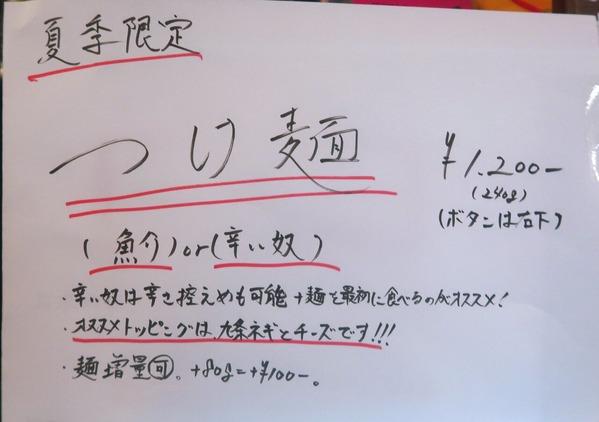 夏季限定
つけ麺
¥1.200-
(240g)
(ボタンは右下)
(魚介)or(辛い奴)
・辛い奴は辛さ控えめも可能 +麺を最初に食べるのがオススメ!
・オススメトッピングは、九条ネギとチーズです!!!
・麺増量可。+80g=+¥100-。